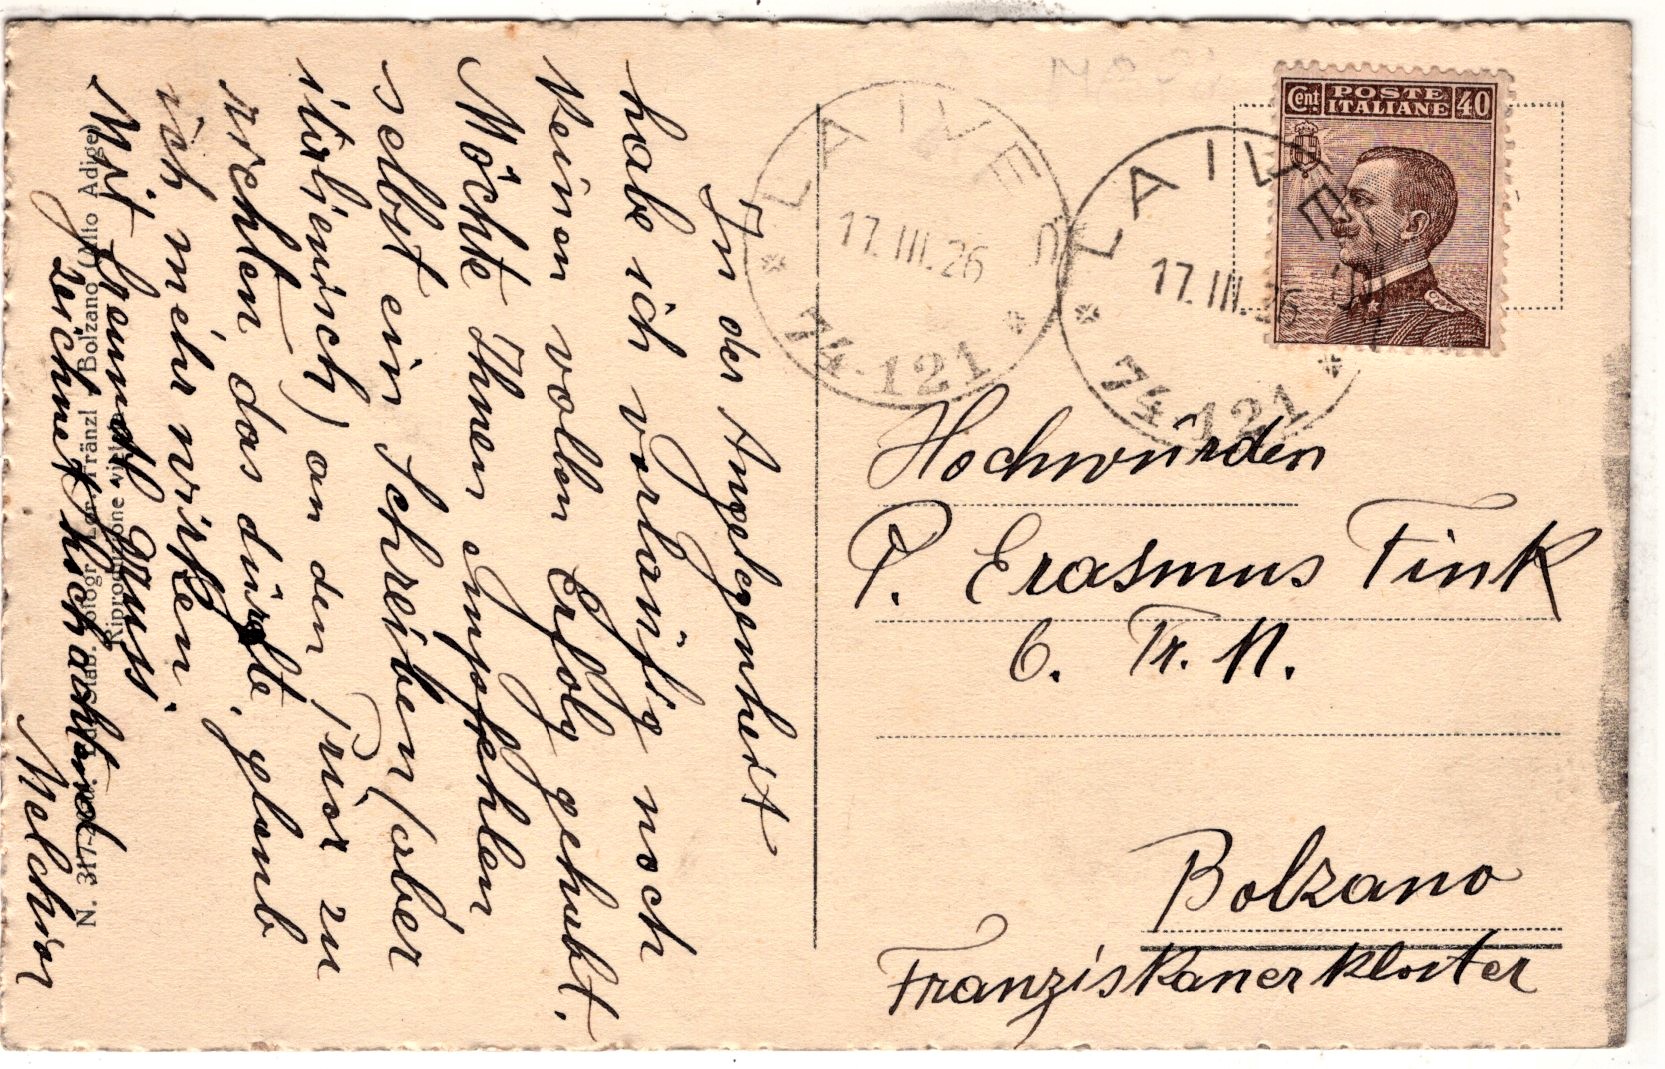 In der Angelegenheit
habe ich vorläufig noch
keinen vollen Erfolg gehabt.
Möchte Ihnen empfehlen
selbst ein Schreiben (aber
italienisch) an den Prior zu
richten, das dürfte, glaub
ich mehr wirken.
Mit Gruß
zeichnet hochachtend
Melchior
N. 317 Stab. Fotogr. Lor. Fränzl Bolzano (Alto Adige)
Riproduzione vietata
LAIVES
17.III.26
74-121
LAIVES
17.III.26
74-121
Cent POSTE ITALIANE 40
Hochwürden
P. Erasmus Fink
O. Fr. M.
Bolzano
Franziskanerkloster